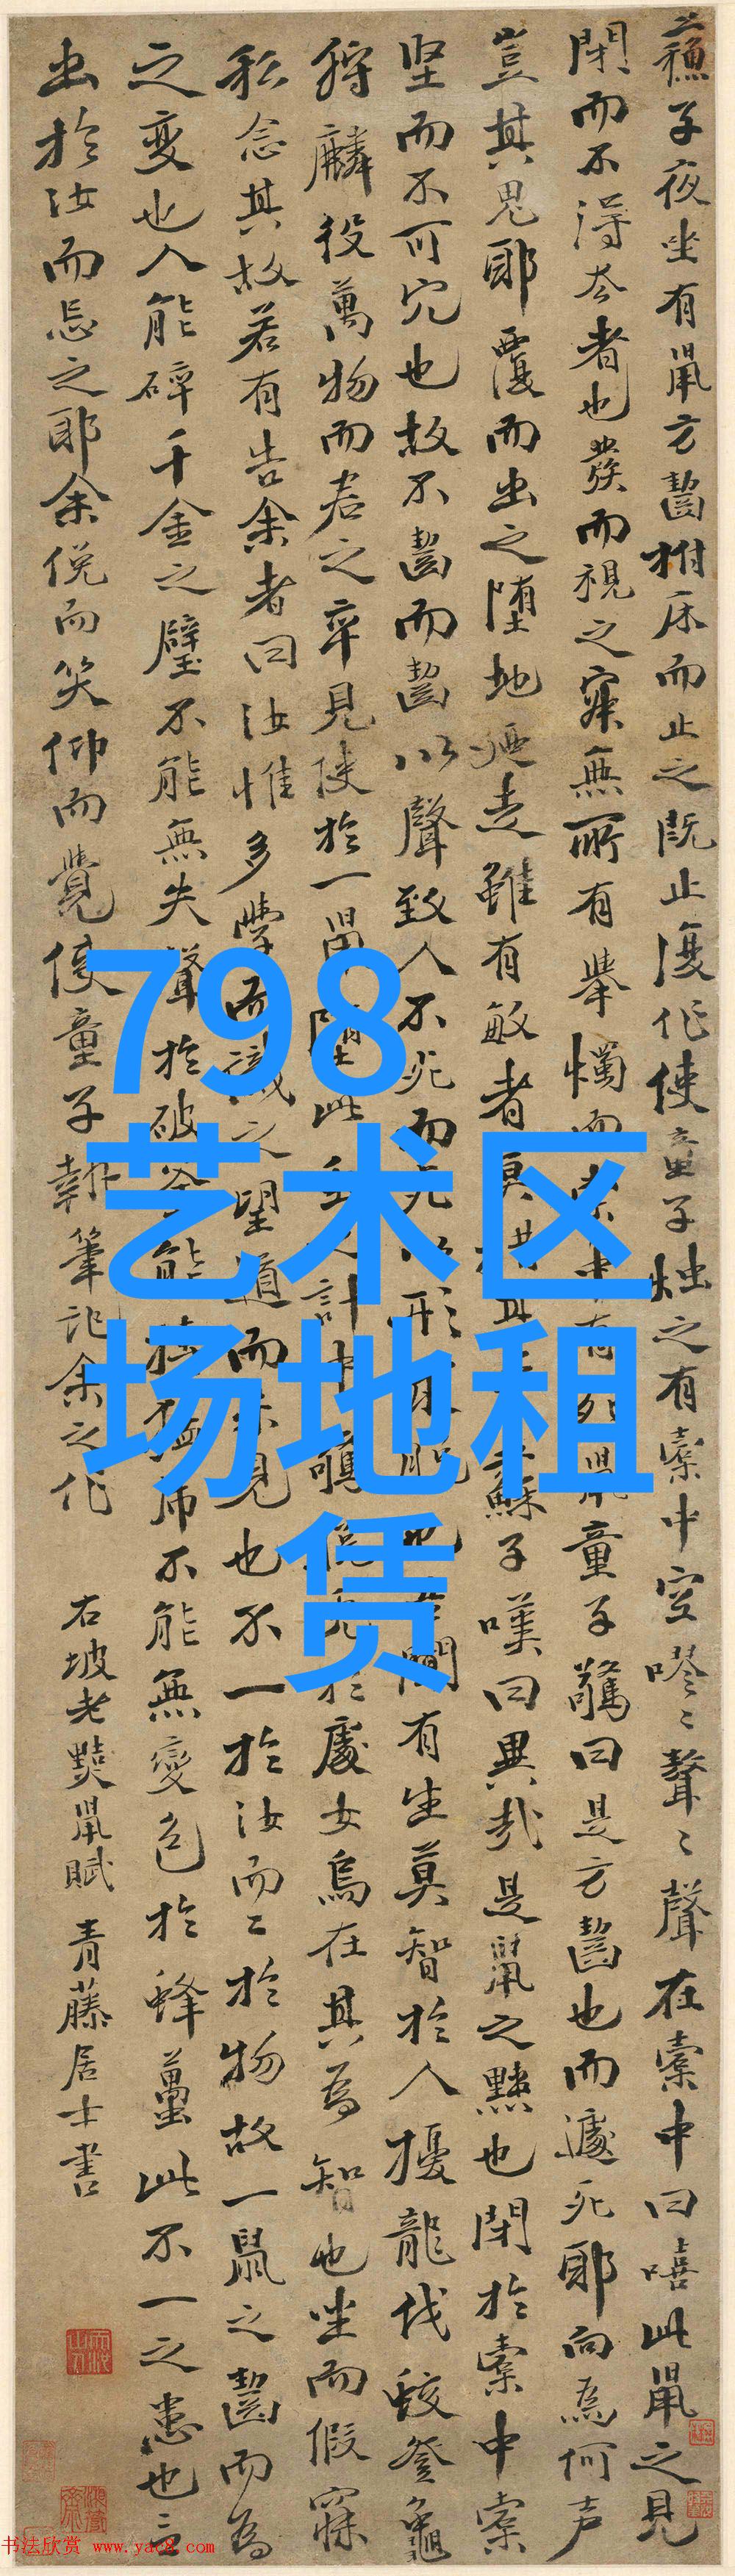 蘇子夜坐有鼠方齧拊床而止之既止復作使童子燭之有橐中空嘐〻聱〻聲在橐中曰嘻此鼠之見
閉而不得去者也發而視之寂無所有舉燭而索中有死鼠童子驚曰是方齧也而遽死耶向為何声
豈其鬼耶覆而出之墮地廼走雖有敏者莫措其蘇子嘆曰異哉是鼠之黠也閉於橐中橐
坚而不可穴也故不齧而齧以聲致人不死而死以形求脱也吾聞有生莫智於人擾龍伐蛟登龜
狩麟役萬物而君之卒見使於一鼠墮此之計中驚脱兔於處女烏在其為智也坐而假寐
私念其故若有告余者曰汝惟多學而識之望道而未見也不一於汝而二於物故一鼠之齧而為
之變也人能碎千金之璧不能無失聲於破釜能搏猛虎不能無變色於蜂蠆此不一之患也言
出於汝而忘之耶余俛而笑仰而覺使童子執筆記余之作
右坡老黠鼠賦 青藤居士書
798
艺术区
场地租
赁
书法欣赏 www.yac8.com